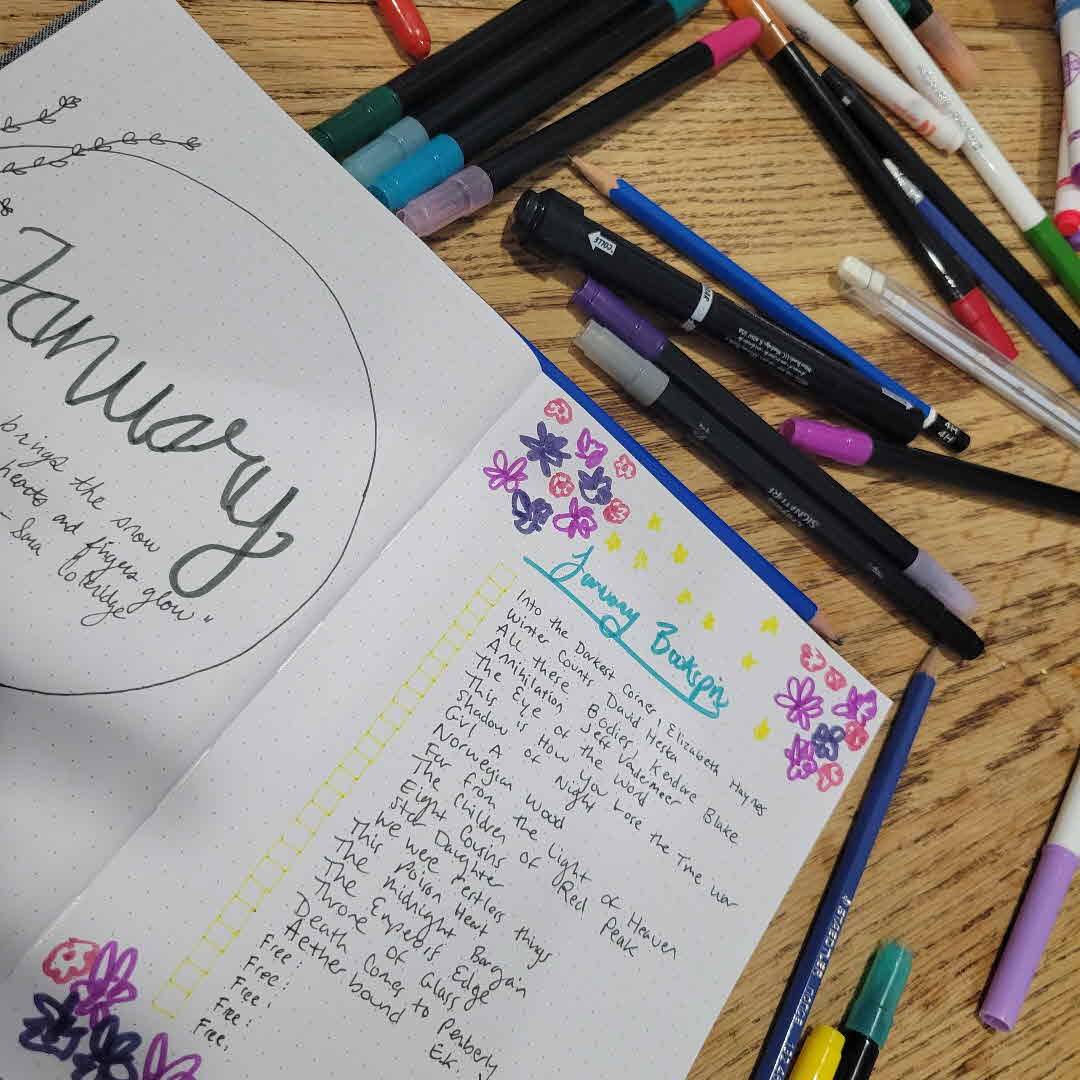 January
brings the snow
hearts and fingers glow"
- Sara Coleridge
January Bookspin
Into the Darkest Corner, Elizabeth Haynes
Winter Counts David Heska
All these Bodies, Kendare Blake
Annihilation Jeff Vadermeer
The Eye of the World
This is How You Lose the Time War
Shadow of Night
Girl A
Norwegian Wood
Far from the Light of Heaven
The Children of Red Peak
Eight Cousins
Star Daughter
We were restless things
This Poison Heart
The Midnight Bargain
The Emperor's Edge
Throne of Glass
Death Comes to Pemberly
Aetherbound E.K.
Free:
Free:
Free:
Free:
Free:
COLLE
SIGNATURE
4H
4H
STAEDTLER